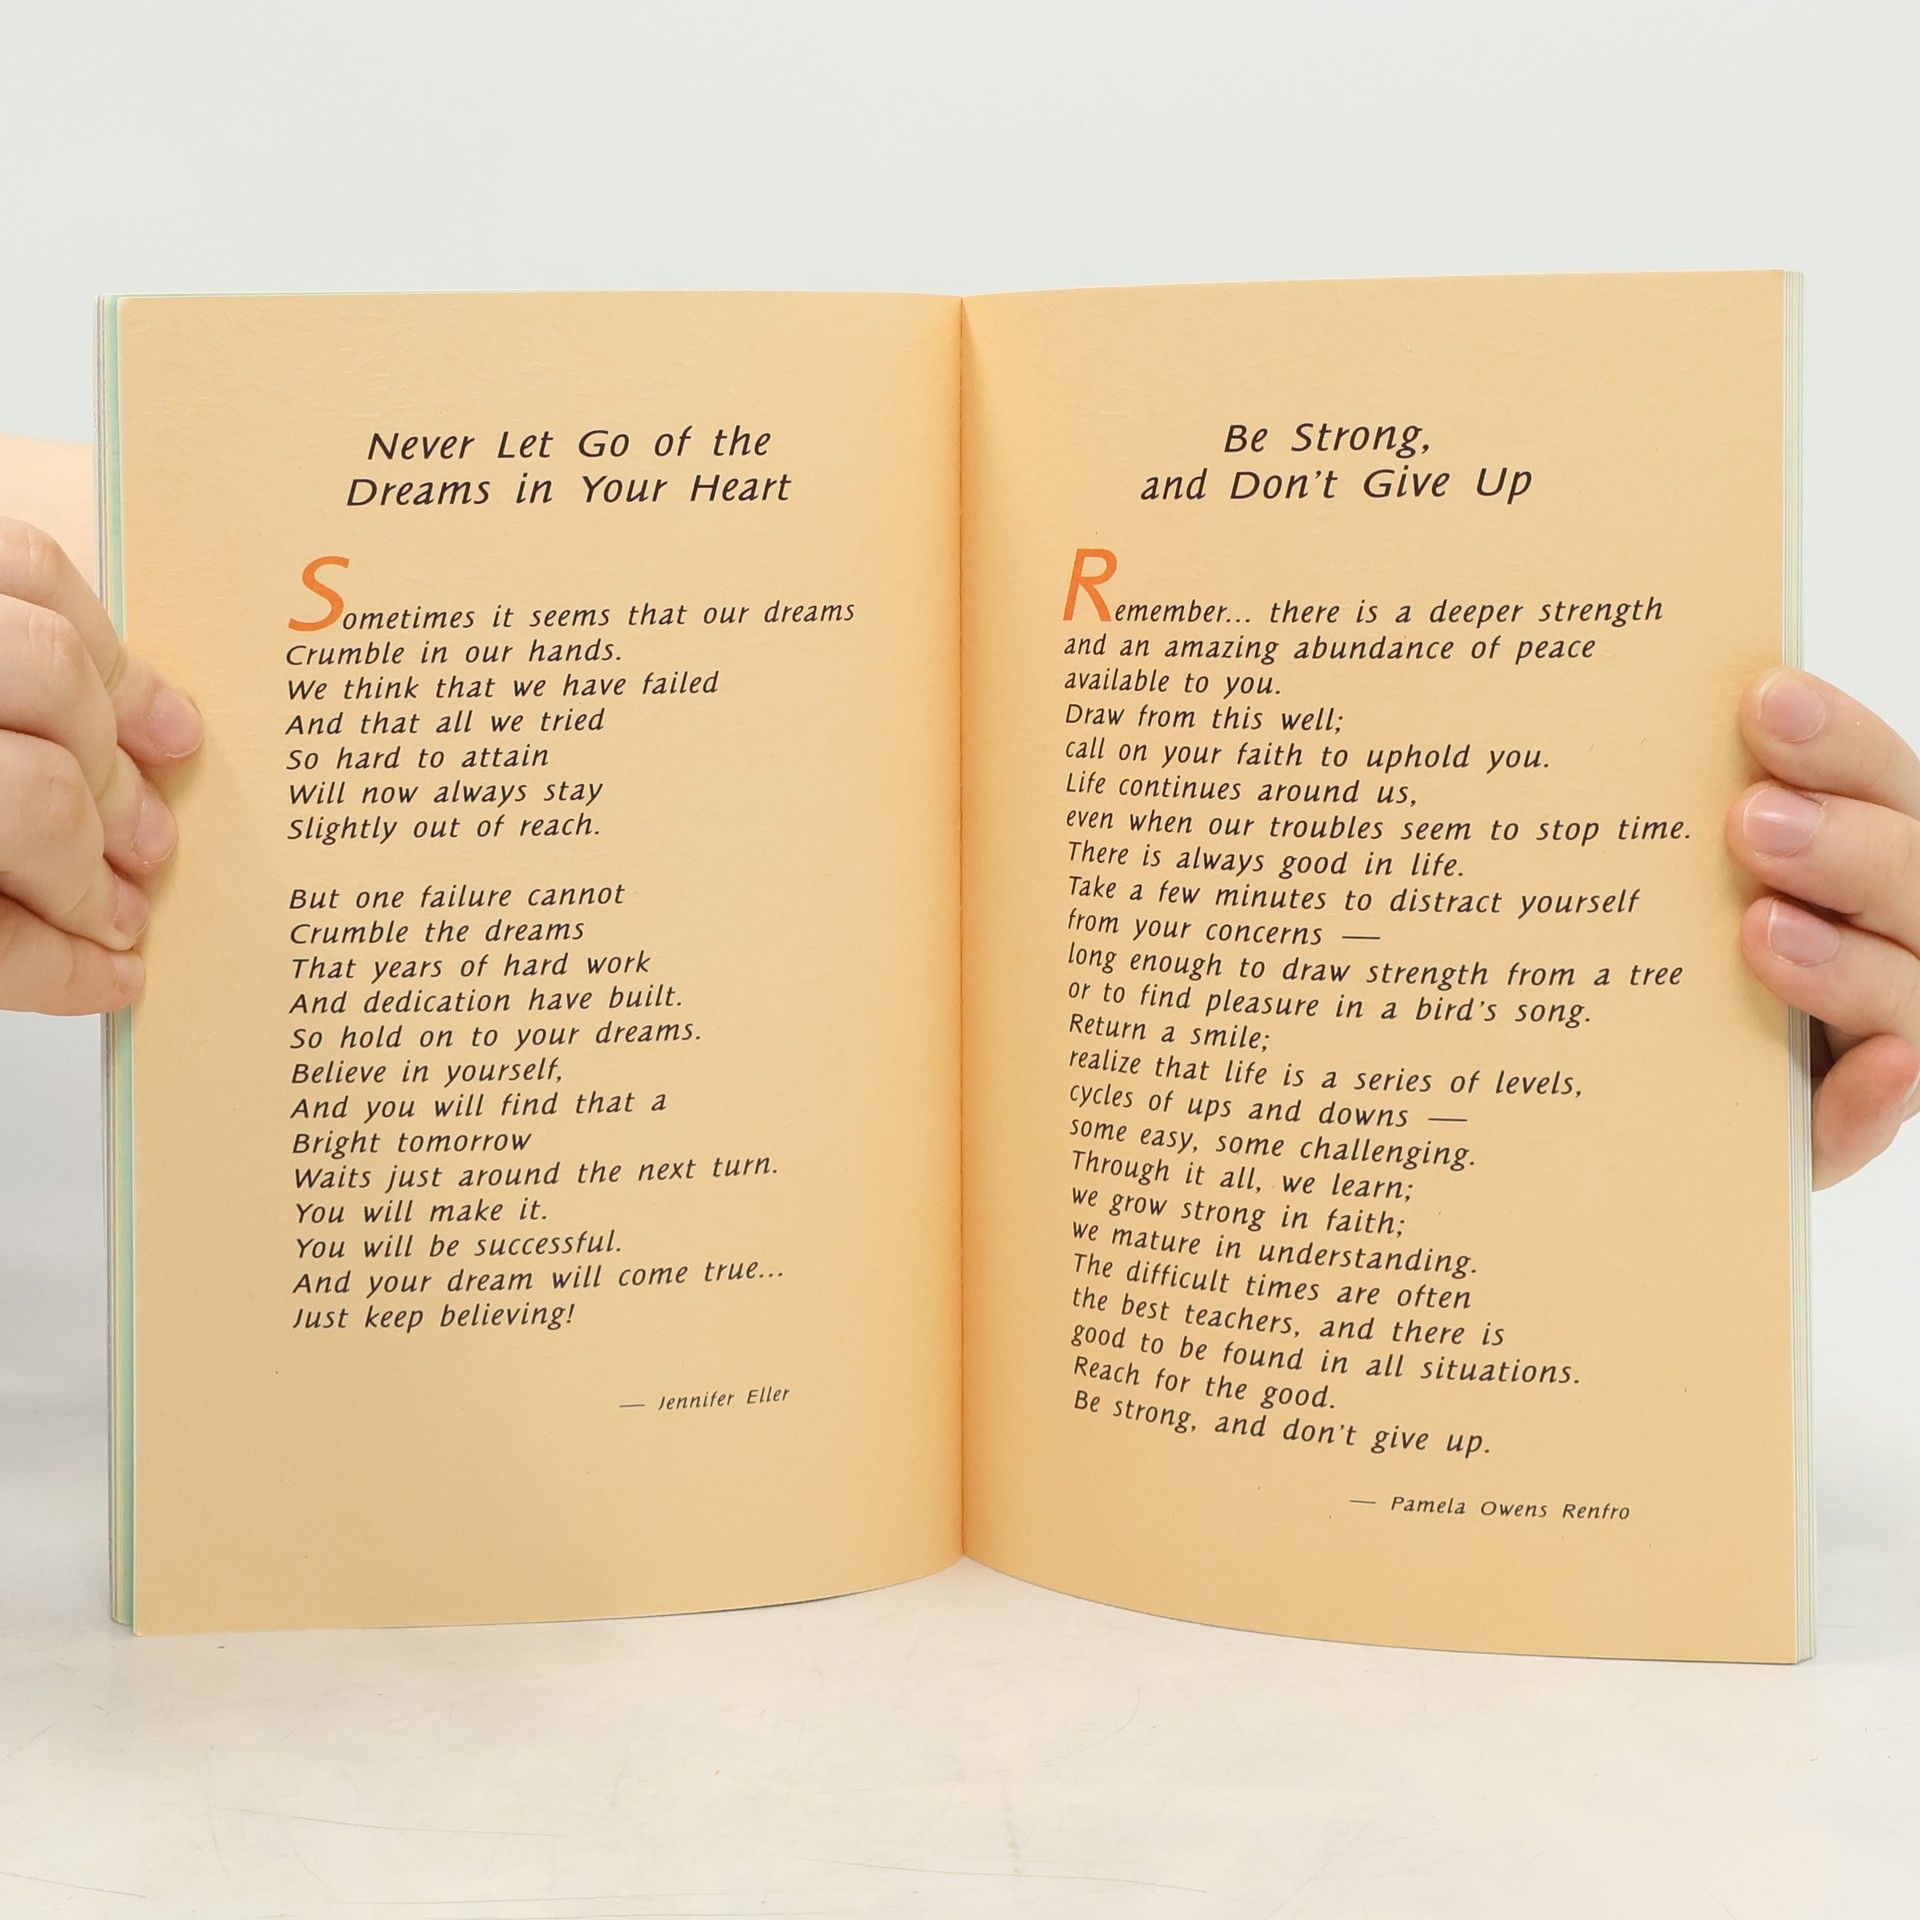 Never Let Go of the
Dreams in Your Heart
Sometimes it seems that our dreams
Crumble in our hands.
We think that we have failed
And that all we tried
So hard to attain
Will now always stay
Slightly out of reach.
But one failure cannot
Crumble the dreams
That years of hard work
And dedication have built.
So hold on to your dreams.
Believe in yourself,
And you will find that a
Bright tomorrow
Waits just around the next turn.
You will make it.
You will be successful.
And your dream will come true...
Just keep believing!
— Jennifer Eller
Be Strong,
and Don't Give Up
Remember... there is a deeper strength
and an amazing abundance of peace
available to you.
Draw from this well;
call on your faith to uphold you.
Life continues around us,
even when our troubles seem to stop time.
There is always good in life.
Take a few minutes to distract yourself
from your concerns —
long enough to draw strength from a tree
or to find pleasure in a bird's song.
Return a smile;
realize that life is a series of levels,
cycles of ups and downs —
some easy, some challenging.
Through it all, we learn;
we grow strong in faith;
we mature in understanding.
The difficult times are often
the best teachers, and there is
good to be found in all situations.
Reach for the good.
Be strong, and don't give up.
— Pamela Owens Renfro